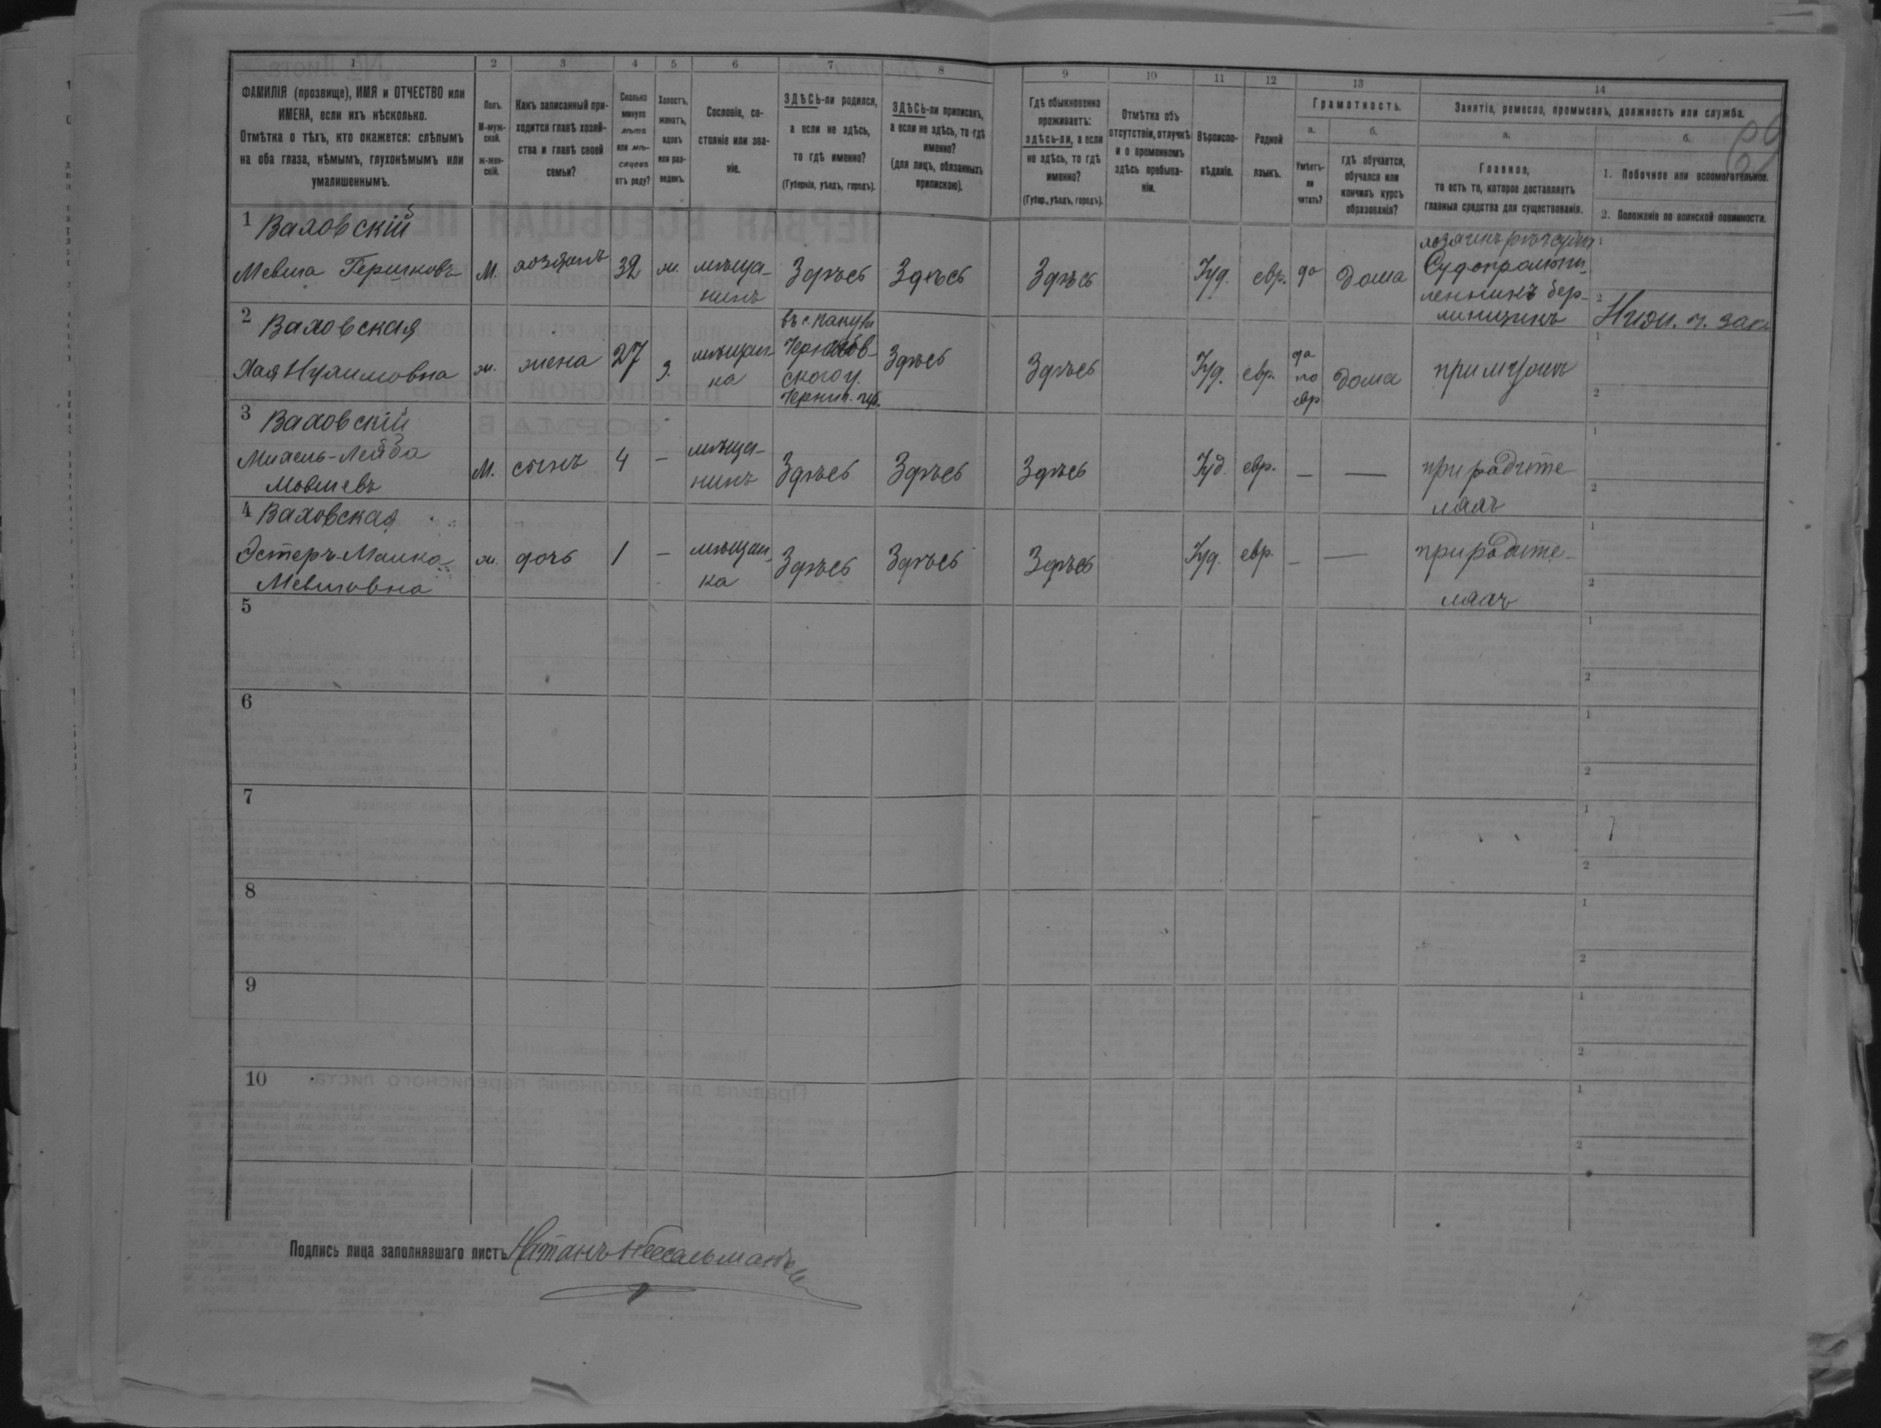 1 2 3 4 5 6 7 8 9 10 11 12 13 14
ФАМИЛІЯ (прозвище), ИМЯ и ОТЧЕСТВО или
ИМЕНА, если ихъ нѣсколько.
Отмѣтка о тѣхъ, кто окажется: слѣпымъ
на оба глаза, нѣмымъ, глухонѣмымъ или
умалишеннымъ.
Полъ.
М-муж-
ской.
ж-жен-
скій.
Какъ записанный при-
ходится главѣ хозяй-
ства и главѣ своей
семьи?
Сколько
минуло
лѣтъ
или мѣ-
сяцевъ
отъ роду?
Холостъ,
женатъ,
вдовъ
или раз-
веденъ.
Сословіе, со-
стояніе или зва-
ніе.
ЗДѢСЬ-ли родился,
а если не здѣсь,
то гдѣ именно?
(Губернія, уѣздъ, городъ).
ЗДѢСЬ-ли приписанъ,
а если не здѣсь, то гдѣ
именно?
(для лицъ, обязанныхъ
припискою).
Гдѣ обыкновенно
проживаетъ:
здѣсь-ли, а если
не здѣсь, то гдѣ
именно?
(Губер., уѣздъ, городъ).
Отмѣтка объ
отсутствіи, отлучкѣ
и о временномъ
здѣсь пребыва-
ніи.
Вѣроиспо-
вѣданіе.
Родной
языкъ.
Грамотность.
а.
Умѣетъ-
ли
читать?
б.
гдѣ обучается,
обучался или
кончилъ курсъ
образованія?
Занятія, ремесло, промыселъ, должность или служба.
а.
Главное,
то есть то, которое доставляетъ
главныя средства для существованія.
б.
1. Побочное или вспомогательное.
2. Положеніе по воинской повинности.
1 Ваховскій
Мевша Гершковъ М. хозяинъ 32 ж. мѣща-
нинъ Здѣсь Здѣсь Здѣсь Іуд. евр. да Дома
Судопромыш-
ленникъ бер-
линщикъ
1
2
2 Ваховская
Хая ж. жена 27 з. мѣщан-
ка
въ с.
ского у.
Черниг. губ.
Здѣсь Здѣсь Іуд. евр. да
по
евр Дома при мужѣ
1
2
3 Ваховскій
Михель-Лейба
Мовшевъ М. сынъ 4 — мѣща-
нинъ Здѣсь Здѣсь Здѣсь Іуд. евр. — — при родите
ляхъ
1
2
4 Ваховская
Эстеръ-Малка
Мевшовна ж. дочь 1 — мѣщан
ка Здѣсь Здѣсь Здѣсь Іуд. евр. — — при родите-
ляхъ
1
2
5
1
2
6
1
2
7
1
2
8
1
2
9
1
2
10
1
2
Подпись лица заполнявшаго листъ